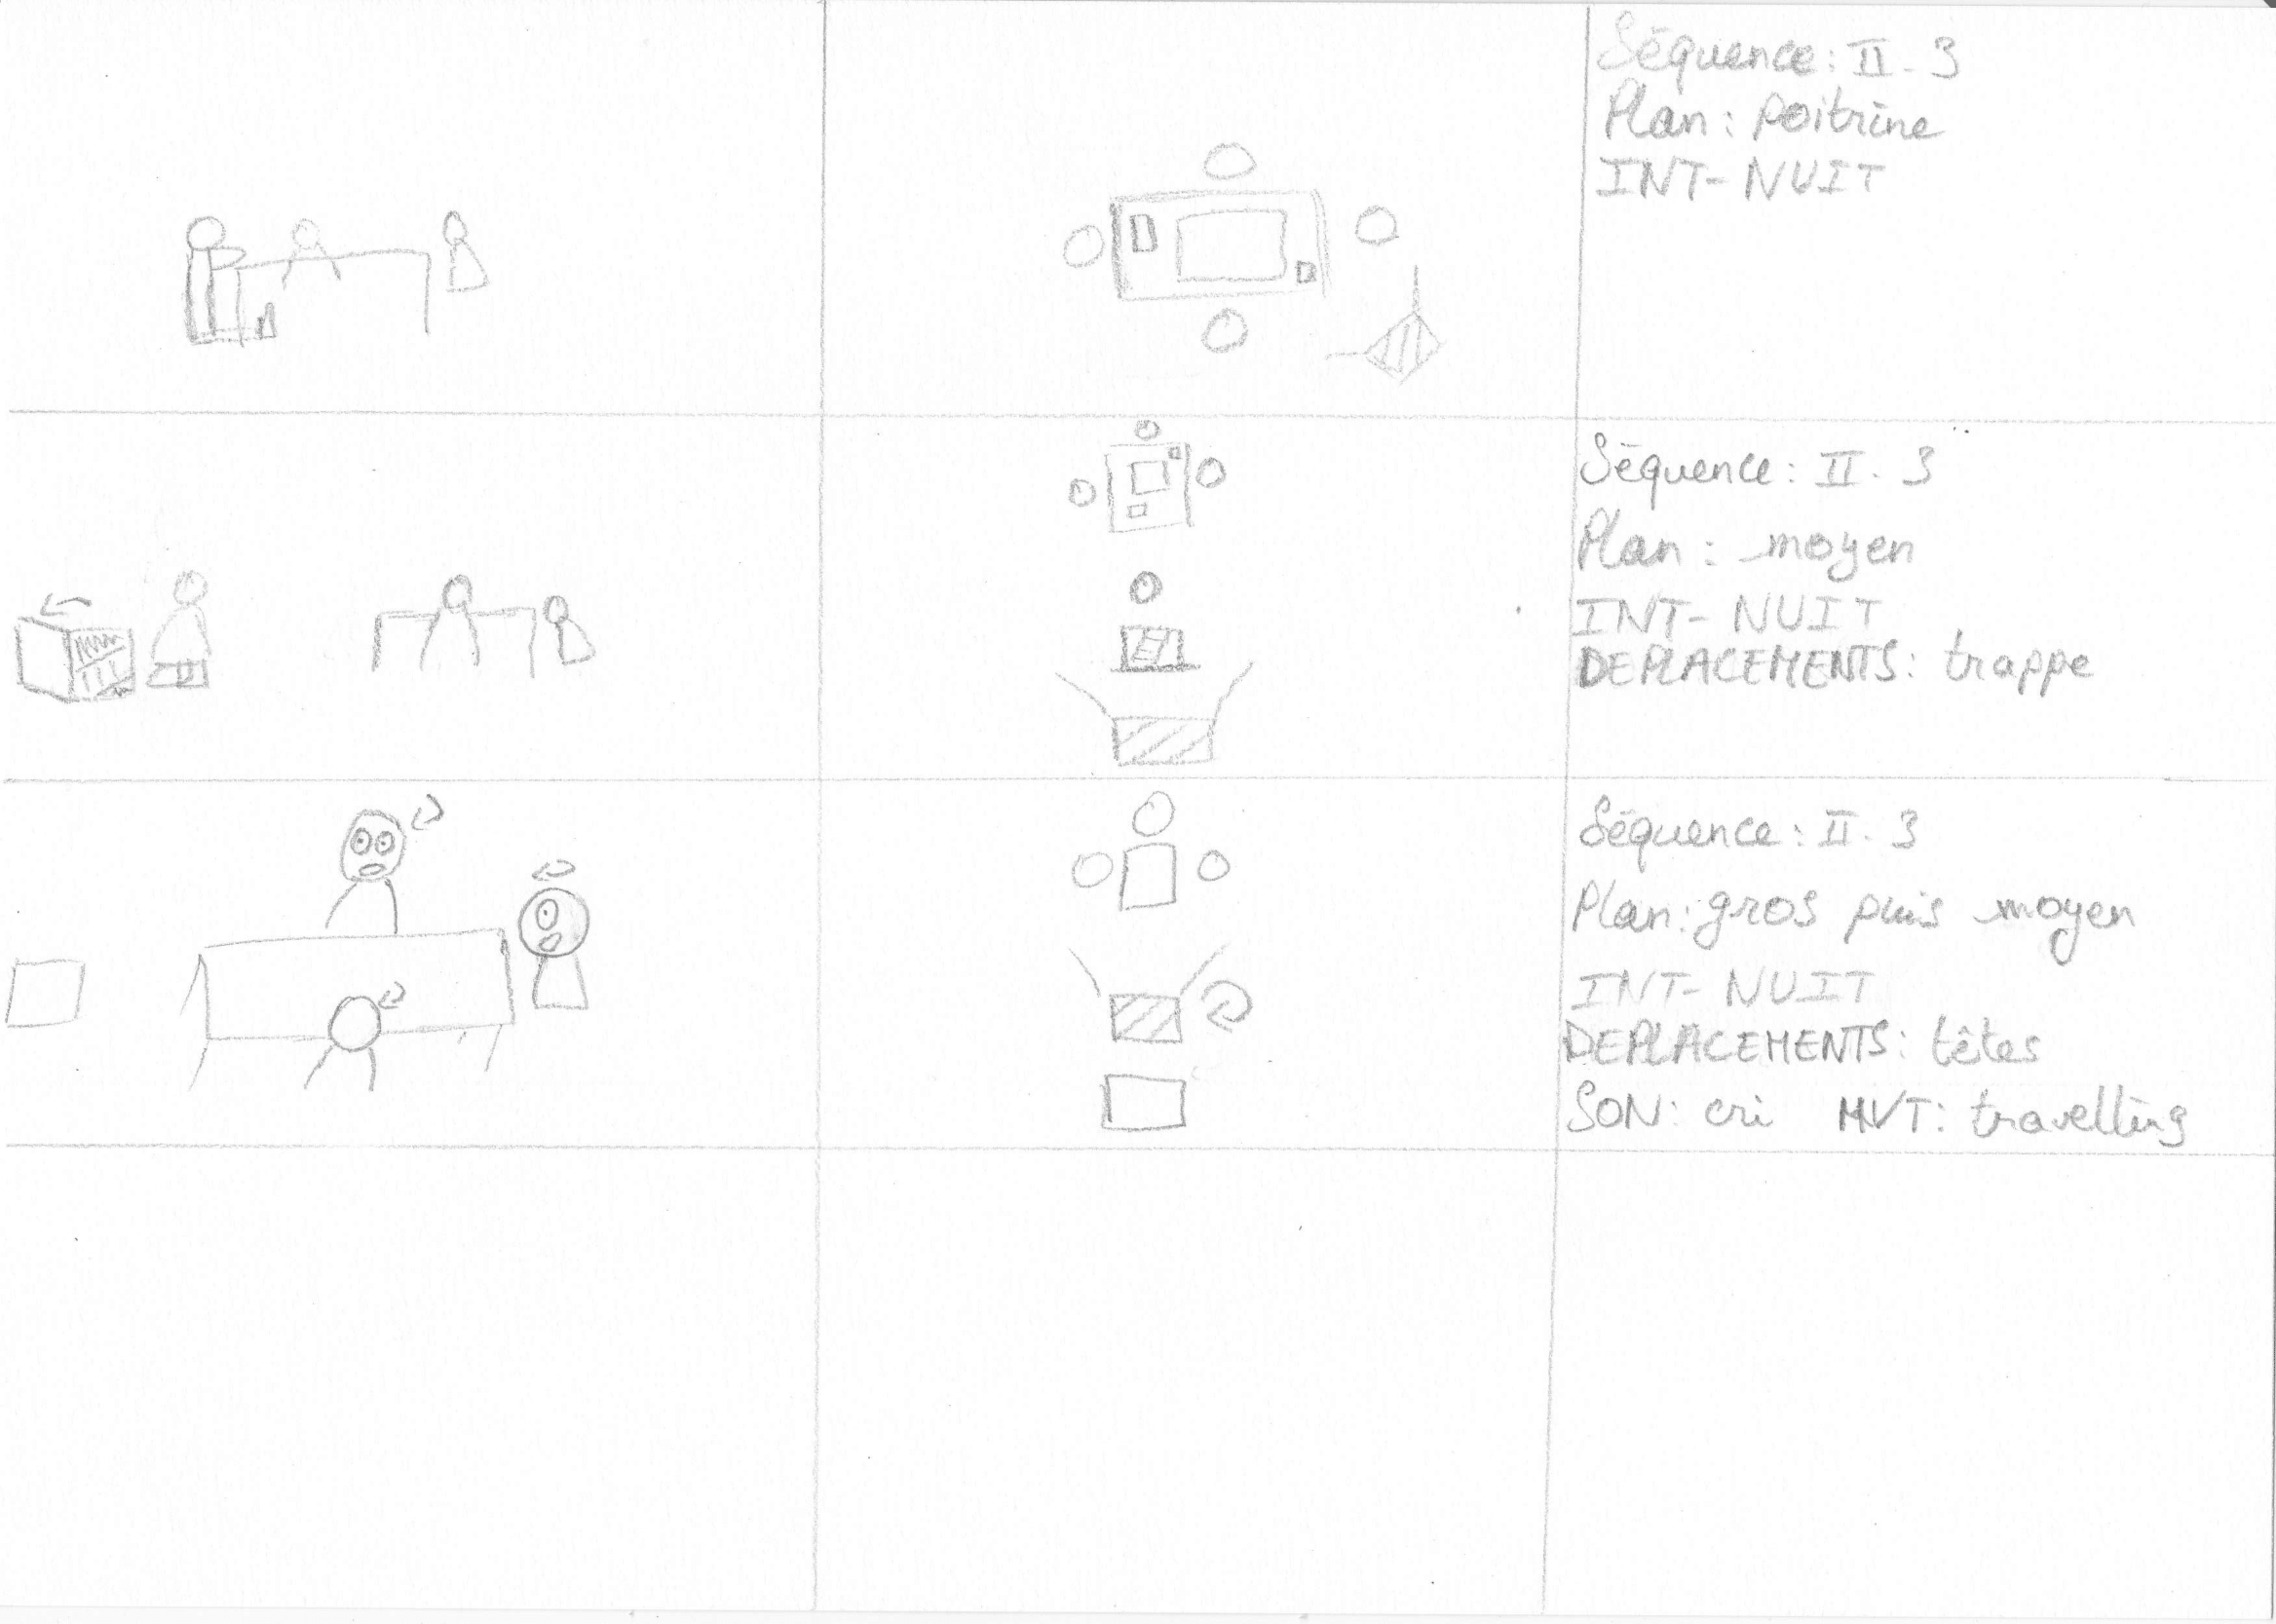 Séquence: II. 3
Plan: poitrine
INT-NUIT
Séquence: II. 3
Plan: moyen
INT-NUIT
DEPLACEMENTS: trappe
Séquence: II. 3
Plan: gros puis moyen
INT-NUIT
DEPLACEMENTS: têtes
SON: cri MVT: travelling